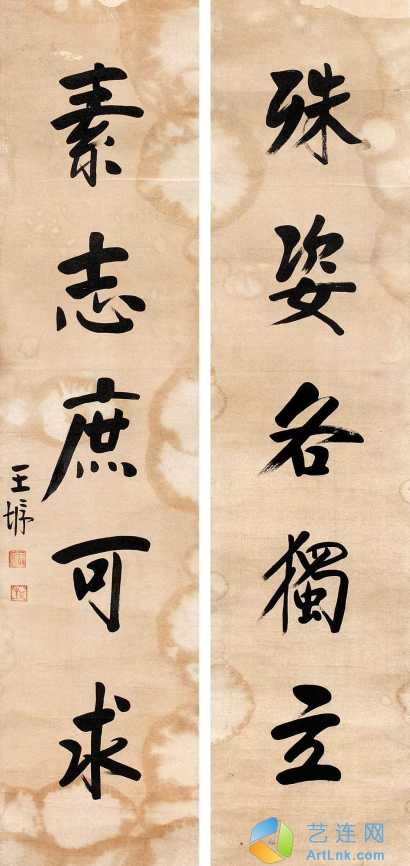 殊姿各獨立
素志庶可求
王埁
艺连网
ArtLnk.com